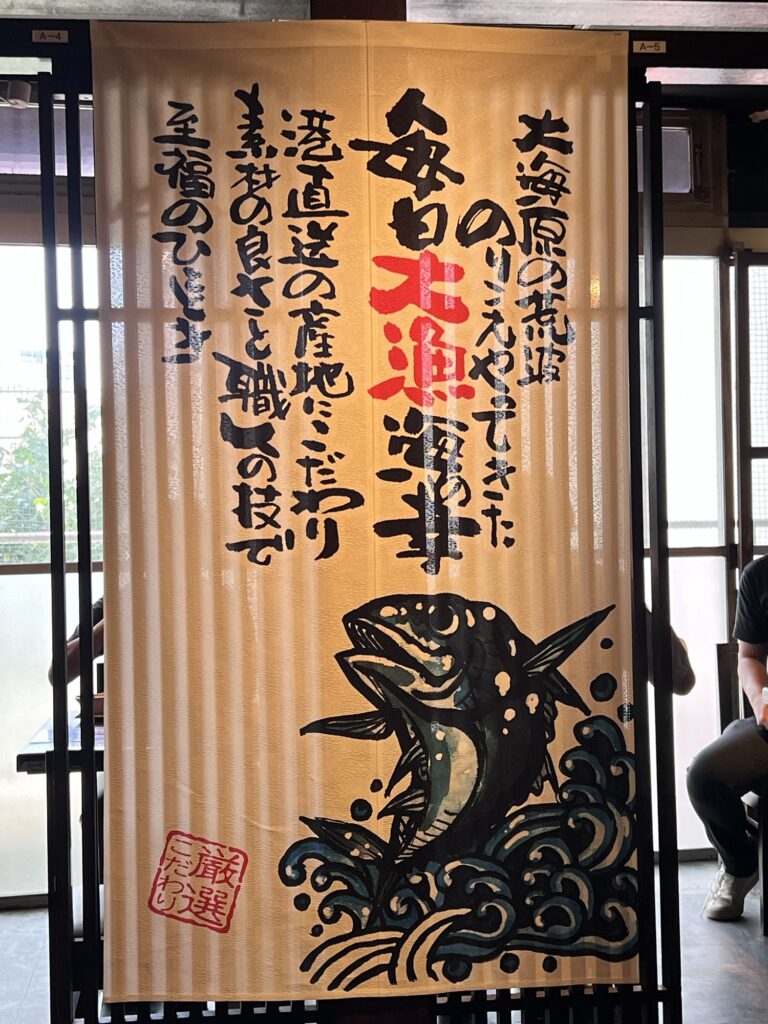 A-4
A-5
大海原の荒波
のりこえやってきた
毎日大漁海の幸
港直送の産地にこだわり
素材の良さと職人の技で
至福のひととき
厳選
こだわり